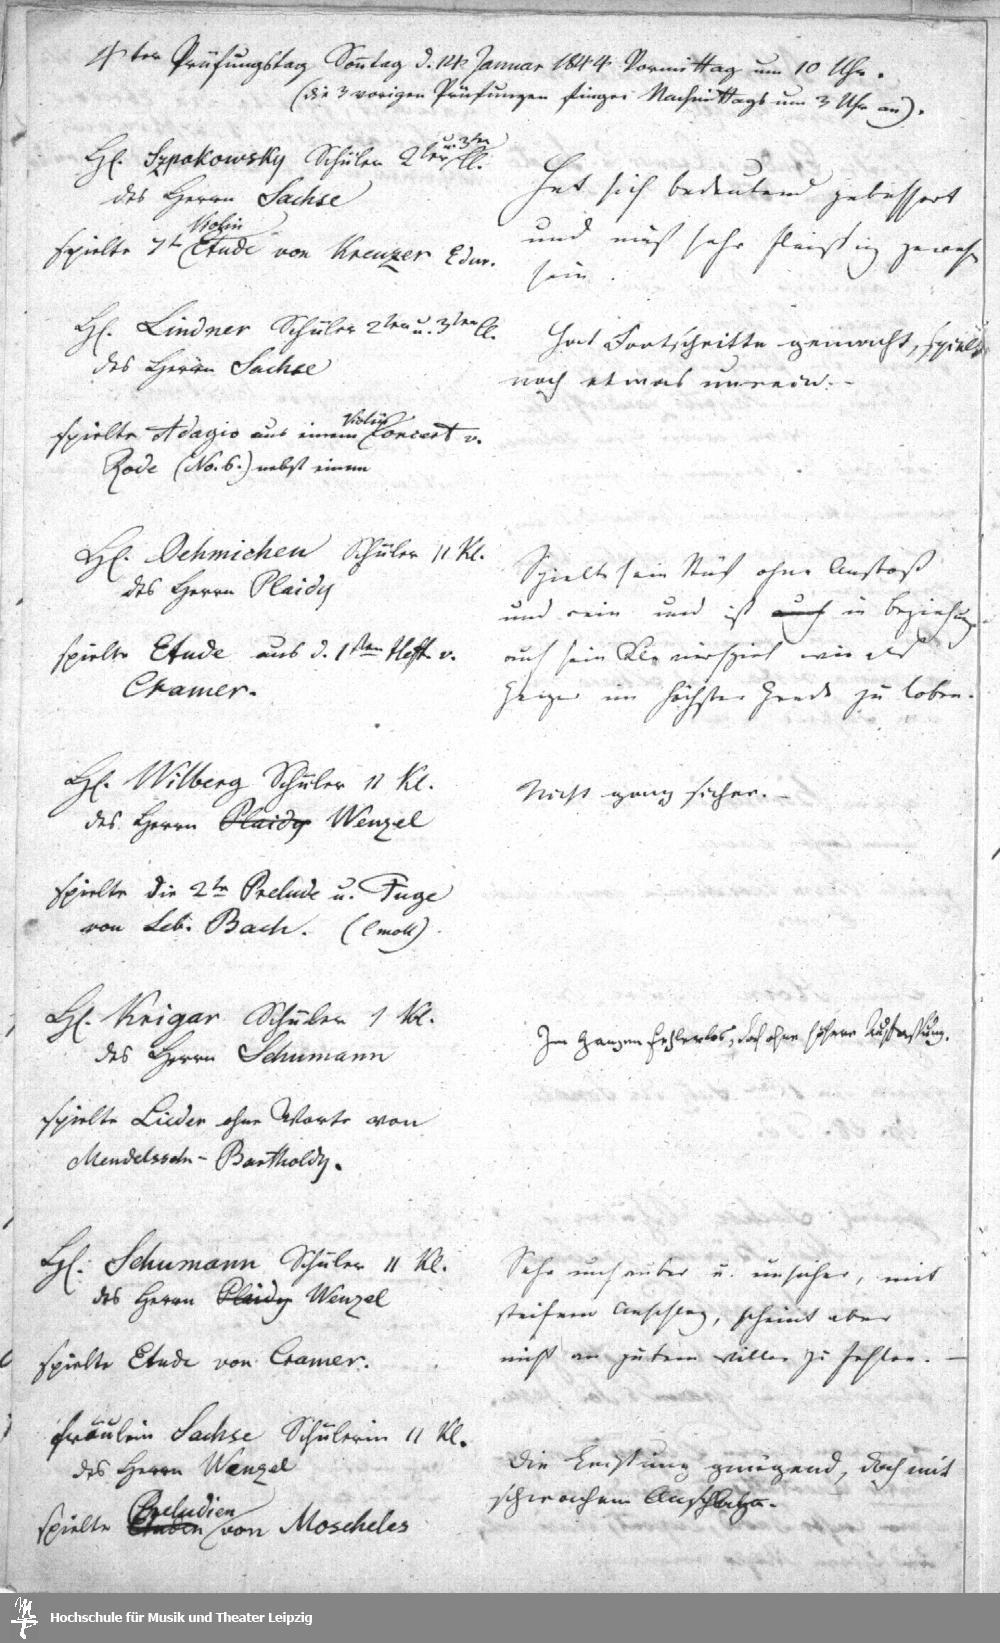 4ter Prüfungstag Sonntag d. 14 Januar 1844 Vormittag um 10 Uhr.
(die 3 vorigen Prüfungen fingen Nachmittags um 3 Uhr an).
H. Szpakowsky Schüler 2ter u. 3ten Cl.
des Herrn Sachse
spielte 7te Violin Etude von Kreuzer Edur.
Hat sich bedeutend gebessert
und muß sehr fleißig gewesen
sein.
H. Lindner Schüler 2ten u. 3ten Cl.
des Herrn Sachse
spielte Adagio aus einem Violin Concert v.
Rode (No. 6.) nebst einem
Hat Fortschritte gemacht, spielt
noch etwas unrein. –
H. Oehmichen Schüler II Kl.
des Herrn Plaidy
spielte Etude aus d. 1sten Heft v.
Cramer.
Spielte sein Stück ohne Anstoß
und rein und ist auch in Beziehung
auf sein Klavierspiel wie als
Geiger im höchsten Grade zu loben.
H. Wilberg Schüler II Kl.
des Herrn Plaidy Wenzel
spielte die 2te Prelude u. Fuge
von Seb. Bach. (Cmoll)
Nicht ganz sicher. –
H. Krigar Schüler I Kl.
des Herrn Schumann
spielte Lieder ohne Worte von
Mendelssohn-Bartholdy.
Im Ganzen fehlerlos, doch ohne höhere Auffassung.
H. Schumann Schüler II Kl.
des Herrn Plaidy Wenzel
spielte Etude von Cramer.
Sehr unsauber u. unsicher, mit
steifem Anschlag, scheint aber
nicht an gutem Willen zu fehlen. –
Fräulein Sachse Schülerin II Kl.
des Herrn Wenzel
spielte Etuden Preludien von Moscheles
Die Leistung genügend, doch mit
schwachem Anschlage.
Hochschule für Musik und Theater Leipzig